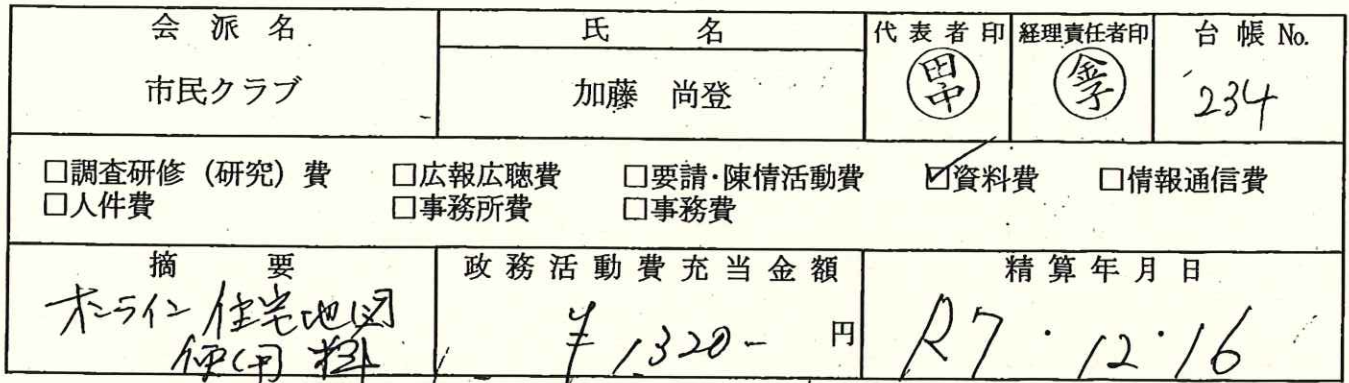 会派名 氏名 代表者印 経理責任者印 台帳No.
市民クラブ 加藤 尚登 田中 金子 234
□調査研修（研究）費 □広報広聴費 □要請・陳情活動費 ☑資料費 □情報通信費
□人件費 □事務所費 □事務費
摘要 政務活動費充当金額 精算年月日
オンライン住宅地図 ¥1320- 円 R7・12・16
使用料